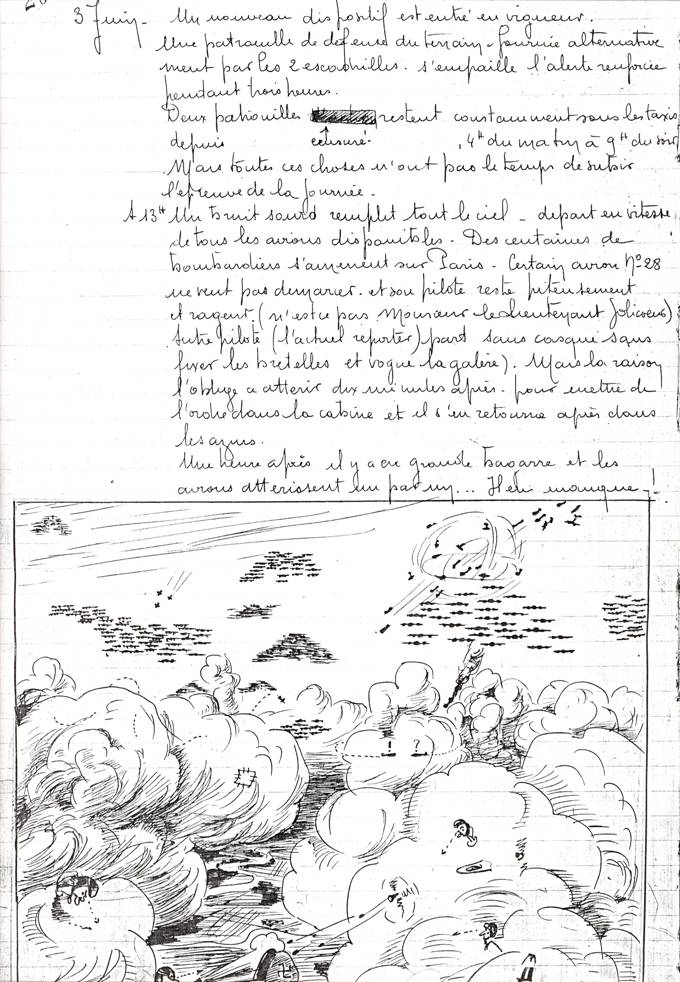 3 Juin - Un nouveau dispositif est entré en vigueur.
Une patrouille de defense du terrain - fournie alternative
ment par les 2 escadrilles. s'empaille l'alerte renforcée
pendant trois heures.
Deux patrouilles restent constamment sous les taxis
depuis censuré. 4H du matin à 9H du soir
Mais toutes ces choses n'ont pas le temps de subir
l'epreuve de la journée.
A 13H Un bruit sourd remplit tout le ciel - depart en vitesse
de tous les avions disponibles - Des centaines de
bombardiers s'amenent sur Paris - Certain avion N°28
ne veut pas demarrer. et son pilote reste piteusement
et rageur. (n'est ce pas Monsieur le lieutenant Jolicoeur)
Autre pilote (l'actuel reporter) part sans casque sans
fixer les bretelles et vogue la galère). Mais la raison
l'oblige a atterir dix minutes après. pour mettre de
l'ordre dans la cabine et il s'en retourne après dans
les azurs.
Une heure après il y a eu grande bagarre et les
avions atterissent un par un... manque
! ?